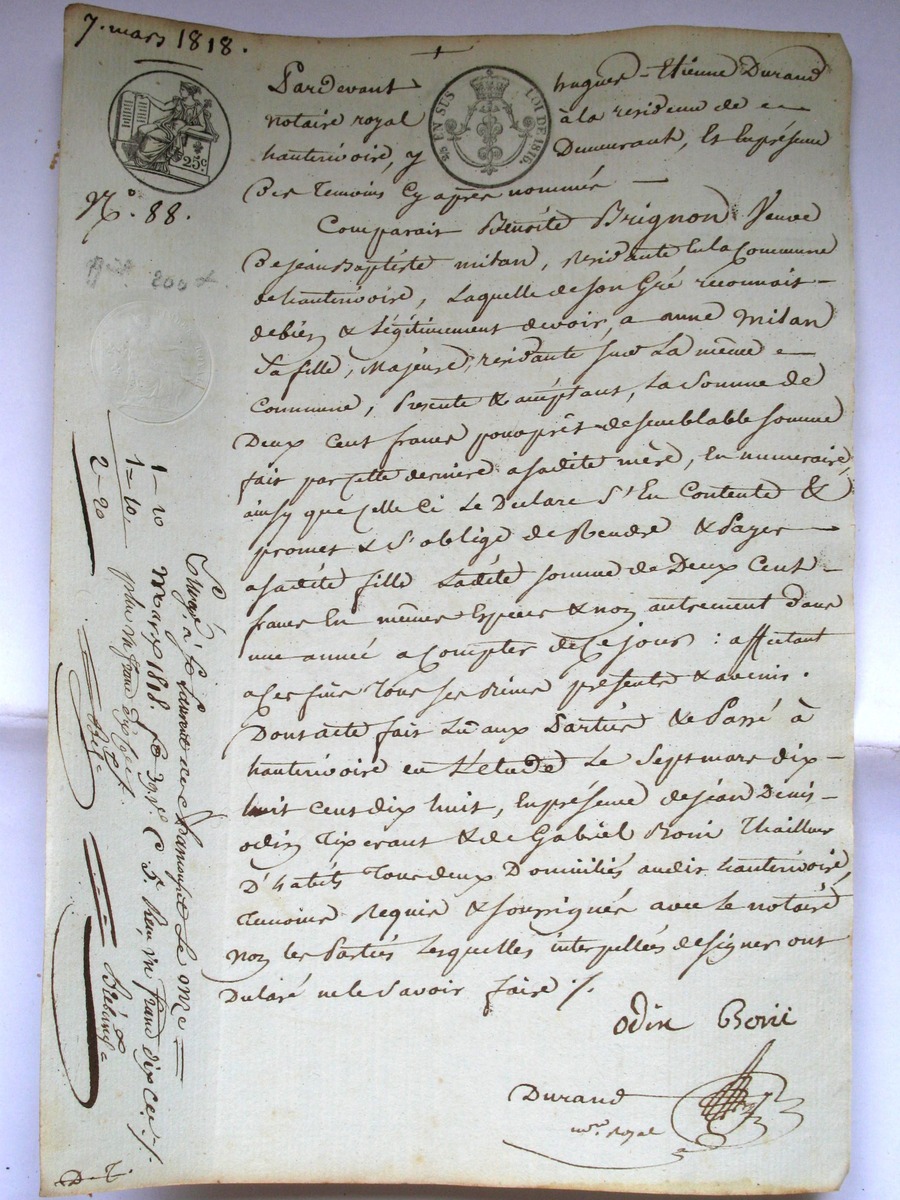 7. mars 1818.
Pardevant hugues-Etienne Durand
notaire royal à la residence de
hauterivoire, y Demeurant, Et En présence
Des Temoins Cy après nommés
25 EN SUS LOI DE 1816.
25c
N.° 88.
200
Comparait Benoite Brignon Veuve
De jean Baptiste milan, residante En la Commune
de hauterivoire, Laquelle de son Gré reconnait
de bien & Légitimement devoir, a anne milan
Sa fille, Majeure, residante sur La même
Commune, Presente & acceptant, La Somme de
Deux Cent francs pour prêt de semblable somme
fait par Cette derniere a sadite mère, En numeraire,
ainsy que Celle Ci Le Declare S'En Contente &
promet & S'oblige de Rendre & Payer
a sadite fille Ladite somme de Deux Cent
francs En mêmes Espèces & non autrement dans
une année a Compter de Ce jour : affectant
a Ces fins Tous ses Biens présents & avenir.
Dont acte fait Lû aux Parties & Passé à
hauterivoire en L'etude Le Sept mars dix
huit cent dix huit, En présence de jean Denis
odin Tixerant & de Gabriel Boni Thailleur
D'habits Tous deux Domiciliés audit hauterivoire,
Temoins Requis & soussignés avec Le notaire
non les Parties Lesquelles interpellées de signer ont
Declaré ne le Savoir faire /.
odin Boni
Durand
nore. Royal
1-10
1=10
2-20
Enregé. à St. Laurent de Chamousset Le onze
Mars 1818. fo. C. 5e. Reçu un franc dix ces.
plus un franc dix cent.
D.T.